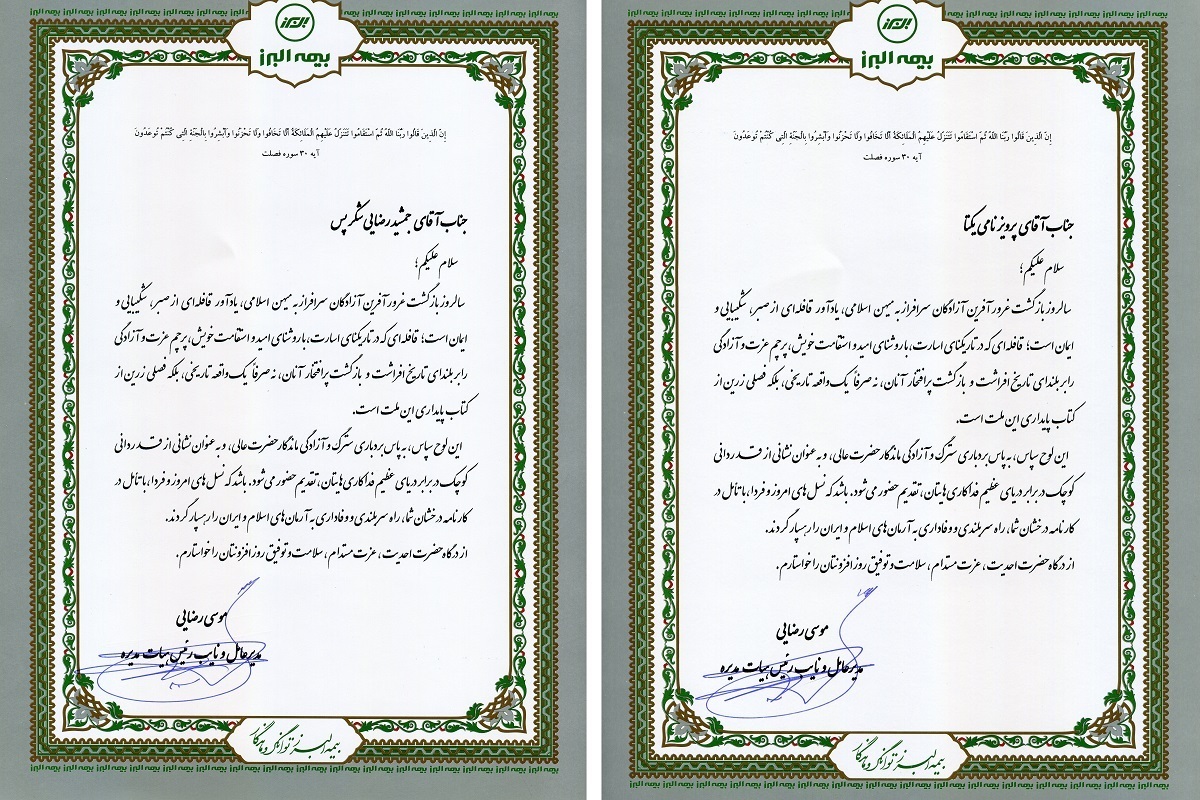 بیمه البرز
إِنَّ الَّذِينَ قَالُوا رَبُّنَا اللَّهُ ثُمَّ اسْتَقَامُوا تَتَنَزَّلُ عَلَيْهِمُ الْمَلَائِكَةُ أَلَّا تَخَافُوا وَلَا تَحْزَنُوا وَأَبْشِرُوا بِالْجَنَّةِ الَّتِي كُنْتُمْ تُوعَدُونَ
آیه ۳۰ سوره فصلت
جناب آقای جمشید رضایی شکرپس
سلام علیکم؛
سالروز بازگشت غرورآفرین آزادگان سرافراز به میهن اسلامی، یادآور قافله‌ای از صبر، شکیبایی و
ایمان است؛ قافله‌ای که در تاریکنای اسارت، با روشنای امید و استقامت خویش، پرچم عزت و آزادگی
را بر بلندای تاریخ افراشت و بازگشت پرافتخار آنان، نه صرفاً یک واقعه تاریخی، بلکه فصلی زرین از
کتاب پایداری این ملت است.
این لوح سپاس، به پاس بردباری سترگ و آزادگی ماندگار حضرت عالی، و به عنوان نشانی از قدردانی
کوچک در برابر دریای عظیم فداکاری هایتان، تقدیم حضور می‌شود. باشد که نسل های امروز و فردا، با تأمل در
کارنامه درخشان شما، راه سربلندی و وفاداری به آرمان های اسلام و ایران را رهسپار گردند.
از درگاه حضرت احدیت، عزت مستدام، سلامت و توفیق روزافزونتان را خواستارم.
موسی رضایی
مدیرعامل و نایب رئیس هیات مدیره
بیمه البرز توانگر و ماندگار
بیمه البرز
إِنَّ الَّذِينَ قَالُوا رَبُّنَا اللَّهُ ثُمَّ اسْتَقَامُوا تَتَنَزَّلُ عَلَيْهِمُ الْمَلَائِكَةُ أَلَّا تَخَافُوا وَلَا تَحْزَنُوا وَأَبْشِرُوا بِالْجَنَّةِ الَّتِي كُنْتُمْ تُوعَدُونَ
آیه ۳۰ سوره فصلت
جناب آقای پرویز نامی یکتا
سلام علیکم؛
سالروز بازگشت غرورآفرین آزادگان سرافراز به میهن اسلامی، یادآور قافله‌ای از صبر، شکیبایی و
ایمان است؛ قافله‌ای که در تاریکنای اسارت، با روشنای امید و استقامت خویش، پرچم عزت و آزادگی
را بر بلندای تاریخ افراشت و بازگشت پرافتخار آنان، نه صرفاً یک واقعه تاریخی، بلکه فصلی زرین از
کتاب پایداری این ملت است.
این لوح سپاس، به پاس بردباری سترگ و آزادگی ماندگار حضرت عالی، و به عنوان نشانی از قدردانی
کوچک در برابر دریای عظیم فداکاری هایتان، تقدیم حضور می‌شود. باشد که نسل های امروز و فردا، با تأمل در
کارنامه درخشان شما، راه سربلندی و وفاداری به آرمان های اسلام و ایران را رهسپار گردند.
از درگاه حضرت احدیت، عزت مستدام، سلامت و توفیق روزافزونتان را خواستارم.
موسی رضایی
مدیرعامل و نایب رئیس هیات مدیره
بیمه البرز توانگر و ماندگار